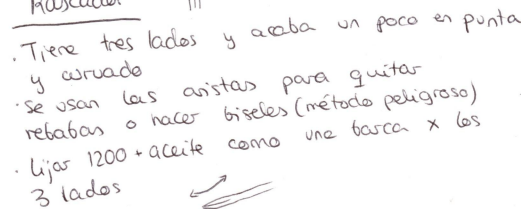 Rascador
· Tiene tres lados y acaba un poco en punta
y curvado
· se usan las aristas para quitar
rebabas o hacer biseles (método peligroso)
· Lijar 1200 + aceite como una barca x los
3 lados